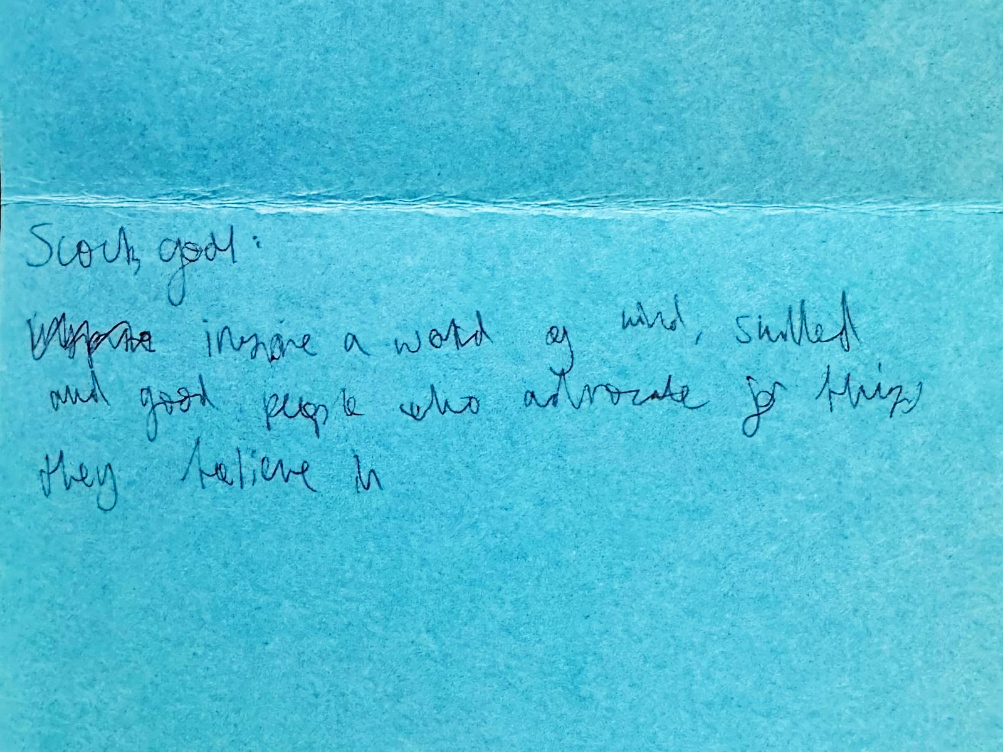 Scouts goal:
inspire a world of kind, skilled
and good people who advocate for things
they believe in